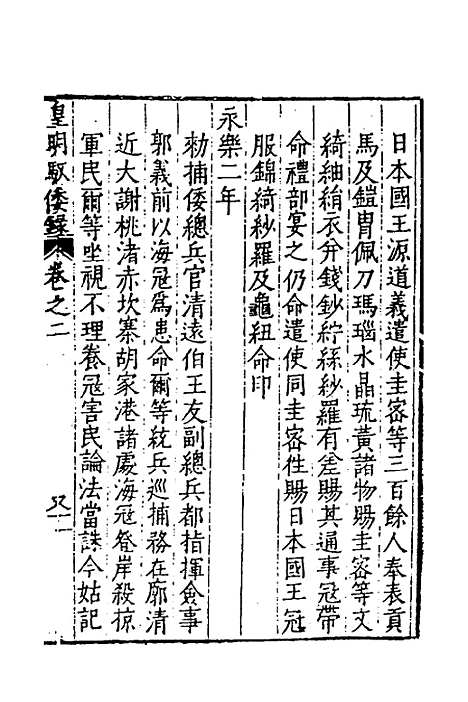 日本國王源道義遣使圭宻等三百餘人奉表貢
馬及鎧胄佩刀瑪瑙水晶琉黃諸物賜圭宻等文
綺紬絹衣并錢鈔紵絲紗羅有差賜其通事冠帶
命禮部宴之仍命遣使同圭宻徃賜日本國王冠
服錦綺紗羅及龜紐命印
永樂二年
勑捕倭總兵官清遠伯王友副總兵都指揮僉事
郭義前以海冦爲患命爾等統兵巡捕務在廓清
近大謝桃渚赤坎寨胡家港諸處海冦登岸殺掠
軍民爾等坐視不理養冦害民論法當誅今姑記
皇明馭倭錄 卷之二